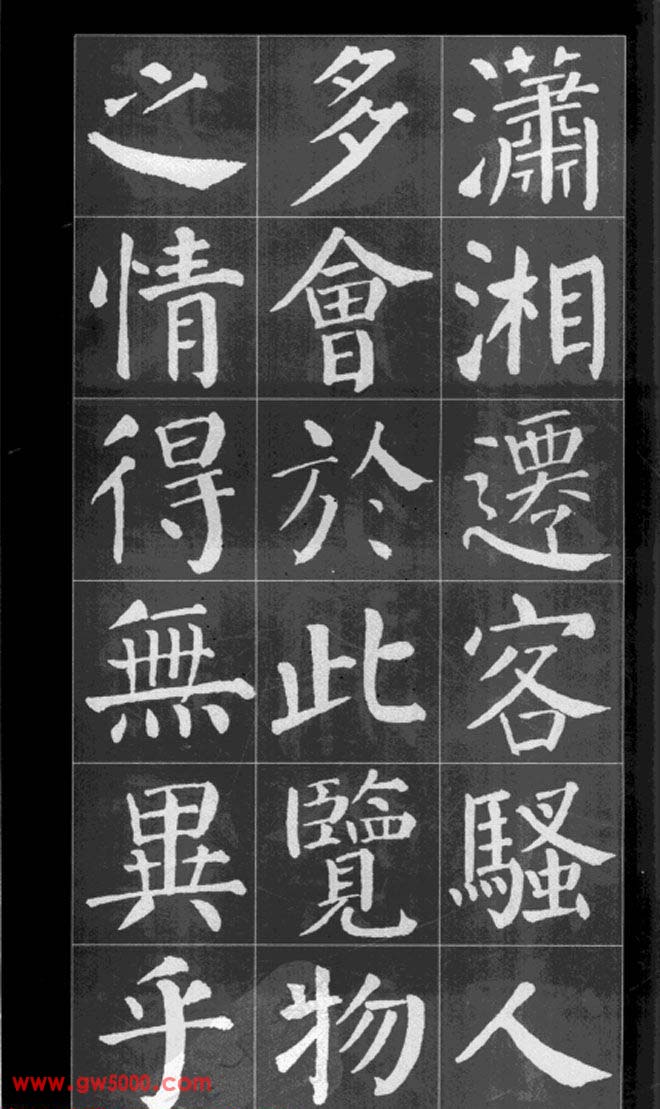 瀟湘遷客騷人
多會於此覽物
之情得無異乎
www.gw5000.com